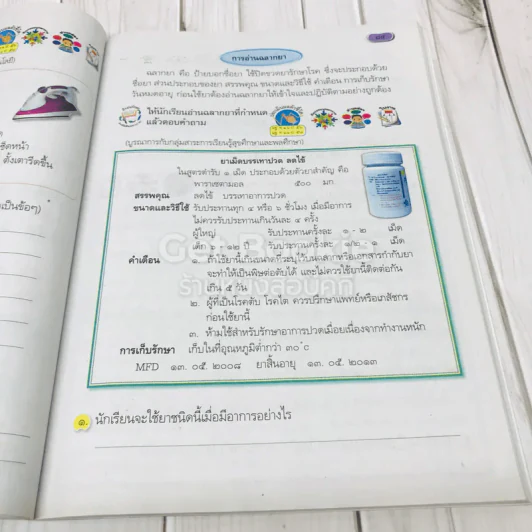 การอ่านฉลากยา
ฉลากยา คือ ป้ายบอกชื่อยา ใช้ปิดขวดยารักษาโรค ซึ่งจะประกอบด้วย
ชื่อยา ส่วนประกอบของยา สรรพคุณ ขนาดและวิธีใช้ คำเตือน การเก็บรักษา
วันหมดอายุ ก่อนใช้ยาต้องอ่านฉลากยาให้เข้าใจและปฏิบัติตามอย่างถูกต้อง
ให้นักเรียนอ่านฉลากยาที่กำหนด
แล้วตอบคำถาม
(บูรณาการกับกลุ่มสาระการเรียนรู้สุขศึกษาและพลศึกษา)
ยาเม็ดบรรเทาปวด ลดไข้
ในสูตรตำรับ ๑ เม็ด ประกอบด้วยตัวยาสำคัญ คือ
พาราเซตามอล ๕๐๐ มก
สรรพคุณ ลดไข้ บรรเทาอาการปวด
ขนาดและวิธีใช้ รับประทานทุก ๔ หรือ ๖ ชั่วโมง เมื่อมีอาการ
ไม่ควรรับประทานเกินวันละ ๔ ครั้ง
ผู้ใหญ่ รับประทานครั้งละ ๑ - ๒ เม็ด
เด็ก ๖ - ๑๒ ปี รับประทานครั้งละ เม็ด
คำเตือน ๑. ถ้าใช้ยานี้เกินขนาดที่ระบุไว้บนฉลากหรือเอกสารกำกับยา
จะทำให้เป็นพิษต่อตับได้ และไม่ควรใช้ยานี้ติดต่อกัน
เกิน ๕ วัน
๒. ผู้ที่เป็นโรคตับ โรคไต ควรปรึกษาแพทย์หรือเภสัชกร
ก่อนใช้ยานี้
๓. ห้ามใช้สำหรับรักษาอาการปวดเมื่อยเนื่องจากทำงานหนัก
การเก็บรักษา เก็บในที่อุณหภูมิต่ำกว่า ๓๐°c
MFD ๑๓. ๐๕. ๒๐๐๘ ยาสิ้นอายุ ๑๓. ๐๕. ๒๐๑๓
๑. นักเรียนจะใช้ยาชนิดนี้เมื่อมีอาการอย่างไร
ร้านหนังสือมือสอง